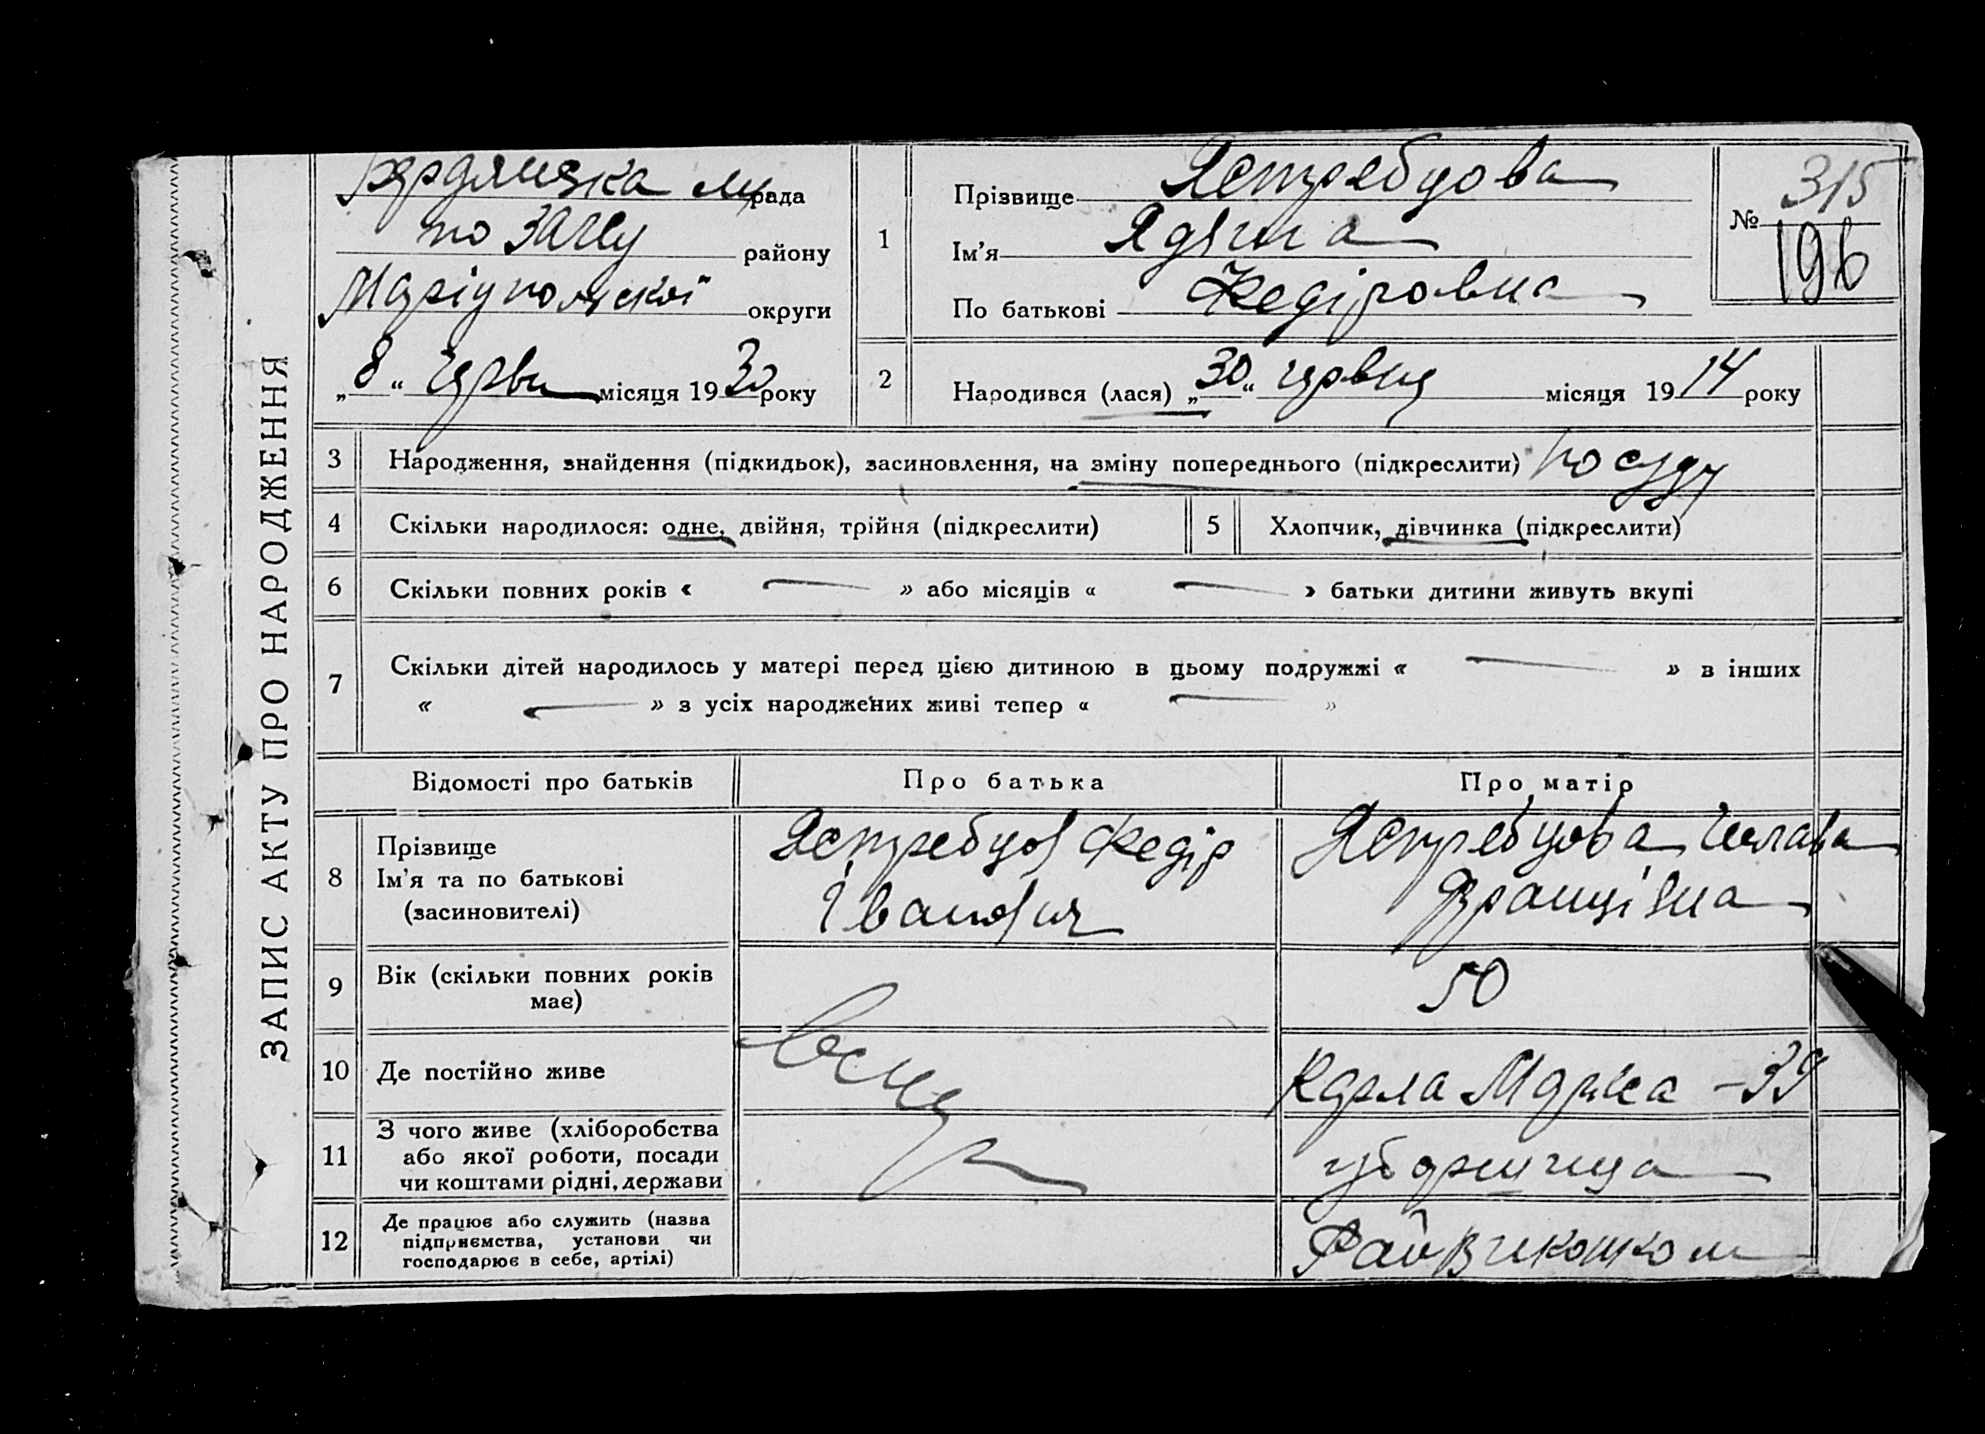 ЗАПИС АКТУ ПРО НАРОДЖЕННЯ
Бердянська м. рада
по ЗАГСу району
Маріупольської округи
„8“ червн місяця 1930 року
1
Прізвище Ястребцова
Ім'я Ядвіга
По батькові Федіровна
№ 315
196
2
Народився (лася) „30“ червня місяця 1914 року
3 Народження, знайдення (підкидьок), засиновлення, на зміну попереднього (підкреслити) по суду
4 Скільки народилося: одне, двійня, трійня (підкреслити)
5 Хлопчик, дівчинка (підкреслити)
6 Скільки повних років « — » або місяців « — » батьки дитини живуть вкупі
7 Скільки дітей народилось у матері перед цією дитиною в цьому подружжі « — » в інших
« — » з усіх народжених живі тепер « — »
Відомості про батьків
Про батька
Про матір
8 Прізвище
Ім'я та по батькові
(засновителі)
Ястребцов Федір
Іванович
Ястребцова
Францівна
9 Вік (скільки повних років
має)
50
10 Де постійно живе
Карла Маркса – 39
11 З чого живе (хліборобства
або якої роботи, посади
чи коштами рідні, держави
уборщица
12 Де працює або служить (назва
підприємства, установи чи
господарює в себе, артілі)
Райвиконком